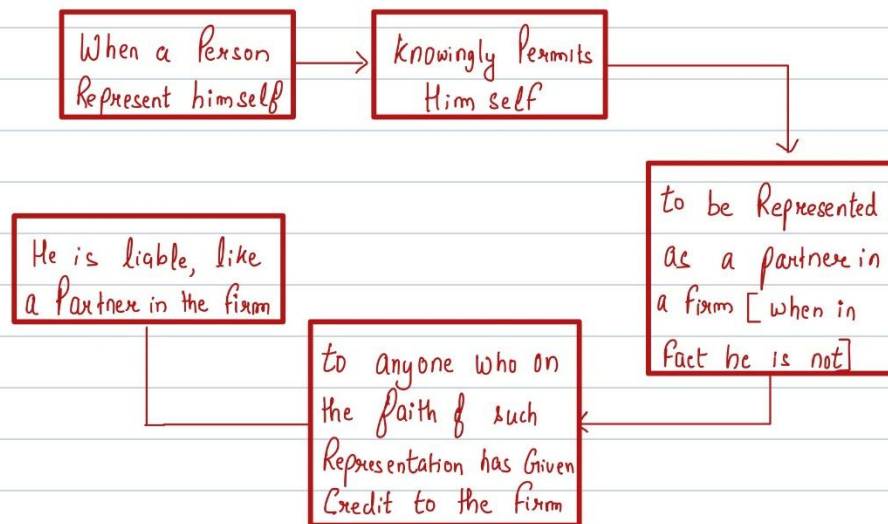 When a Person
Represent himself
Knowingly Permits
Him self
to be Represented
as a partner in
a firm [when in
fact he is not]
to anyone who on
the faith of such
Representation has Given
Credit to the firm
He is liable, like
a Partner in the firm